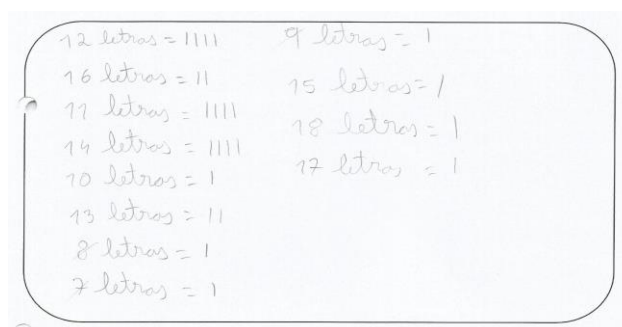 12 letras = 1111
16 letras = 11
11 letras = 1111
14 letras = 1111
10 letras = 1
13 letras = 11
8 letras = 1
7 letras = 1
9 letras = 1
15 letras = 1
18 letras = 1
17 letras = 1